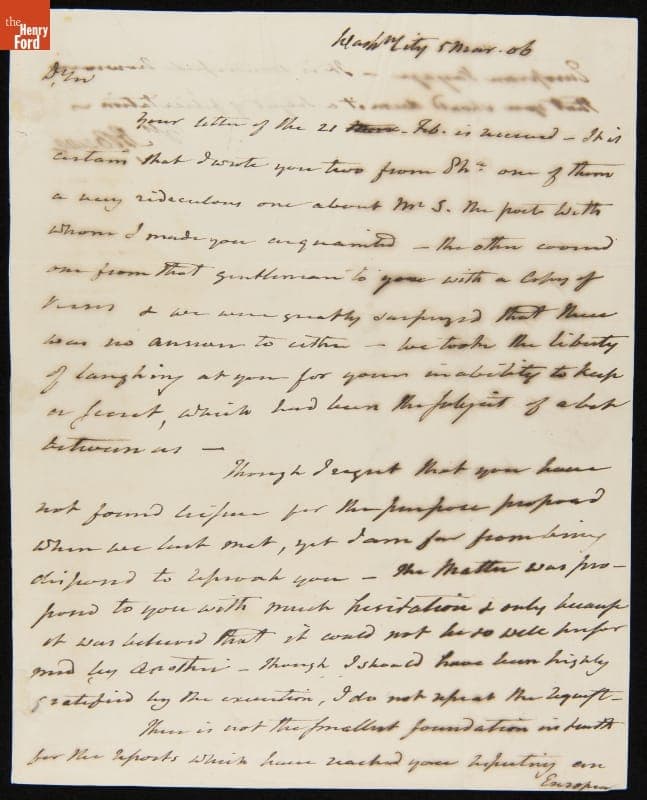 the
Henry
Ford
Washn City 5 Mar. 06
Dr Sir
Your letter of the 21 Feb. is received - It is
certain that I wrote you two from Pha. one of them
a very ridiculous one about Mr S. the poet with
whom I made you acquainted - the other covered
one from that gentleman to you with a Copy of
verses & we were greatly surprized that there
was no answer to either - We took the liberty
of laughing at you for your inability to keep
a secret, which had been the subject of a bet
between us -
Though I regret that you have
not found leisure for the purpose proposed
when we last met, yet I am far from being
disposed to reproach you - the matter was pro-
posed to you with much hesitation & only because
it was believed that it could not be so well perfor
med by another - Though I should have been highly
gratified by the execution, I do not repeat the request -
There is not the smallest foundation in truth
for the reports which have reached you respecting an
European